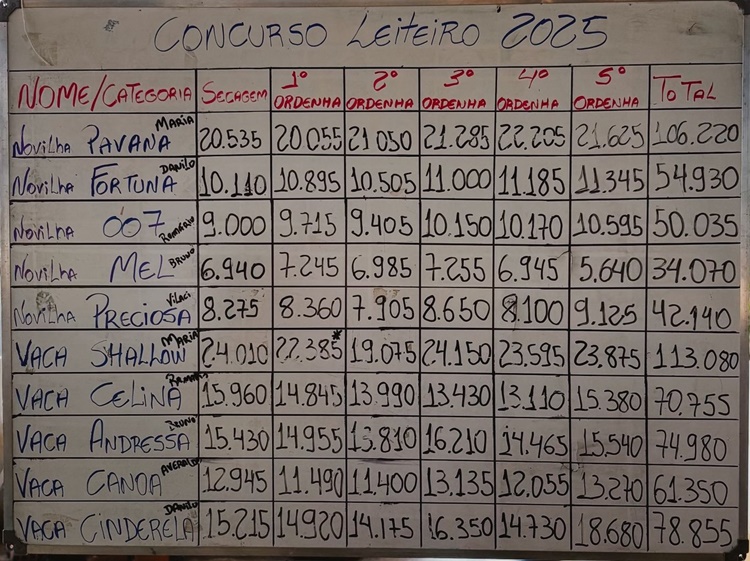 CONCURSO LEITEIRO 2025
NOME/CATEGORIA SECAGEM 1º ORDENHA 2º ORDENHA 3º ORDENHA 4º ORDENHA 5º ORDENHA TOTAL
Novilha PAVANA MARIA 20.535 20.055 21.050 21.285 22.205 21.625 106.220
Novilha FORTUNA DANILO 10.110 10.895 10.505 11.000 11.185 11.345 54.930
Novilha 007 ROMARIO 9.000 9.715 9.405 10.150 10.170 10.595 50.035
Novilha MEL BRUNO 6.940 7.245 6.985 7.255 6.945 5.640 34.070
Novilha PRECIOSA Vilaci 8.275 8.360 7.905 8.650 8.100 9.125 42.140
VACA SHALLOW MARIA 24.010 22.385* 19.075 24.150 23.595 23.875 113.080
VACA CELINA 15.960 14.845 13.990 13.430 13.110 15.380 70.755
VACA ANDRESSA BRUNO 15.430 14.955 13.810 16.210 14.465 15.540 74.980
VACA CANOA AVERALDO 12.945 11.490 11.400 13.135 12.055 13.270 61.350
VACA CINDERELA DANILO 15.215 14.920 14.175 16.350 14.730 18.680 78.855